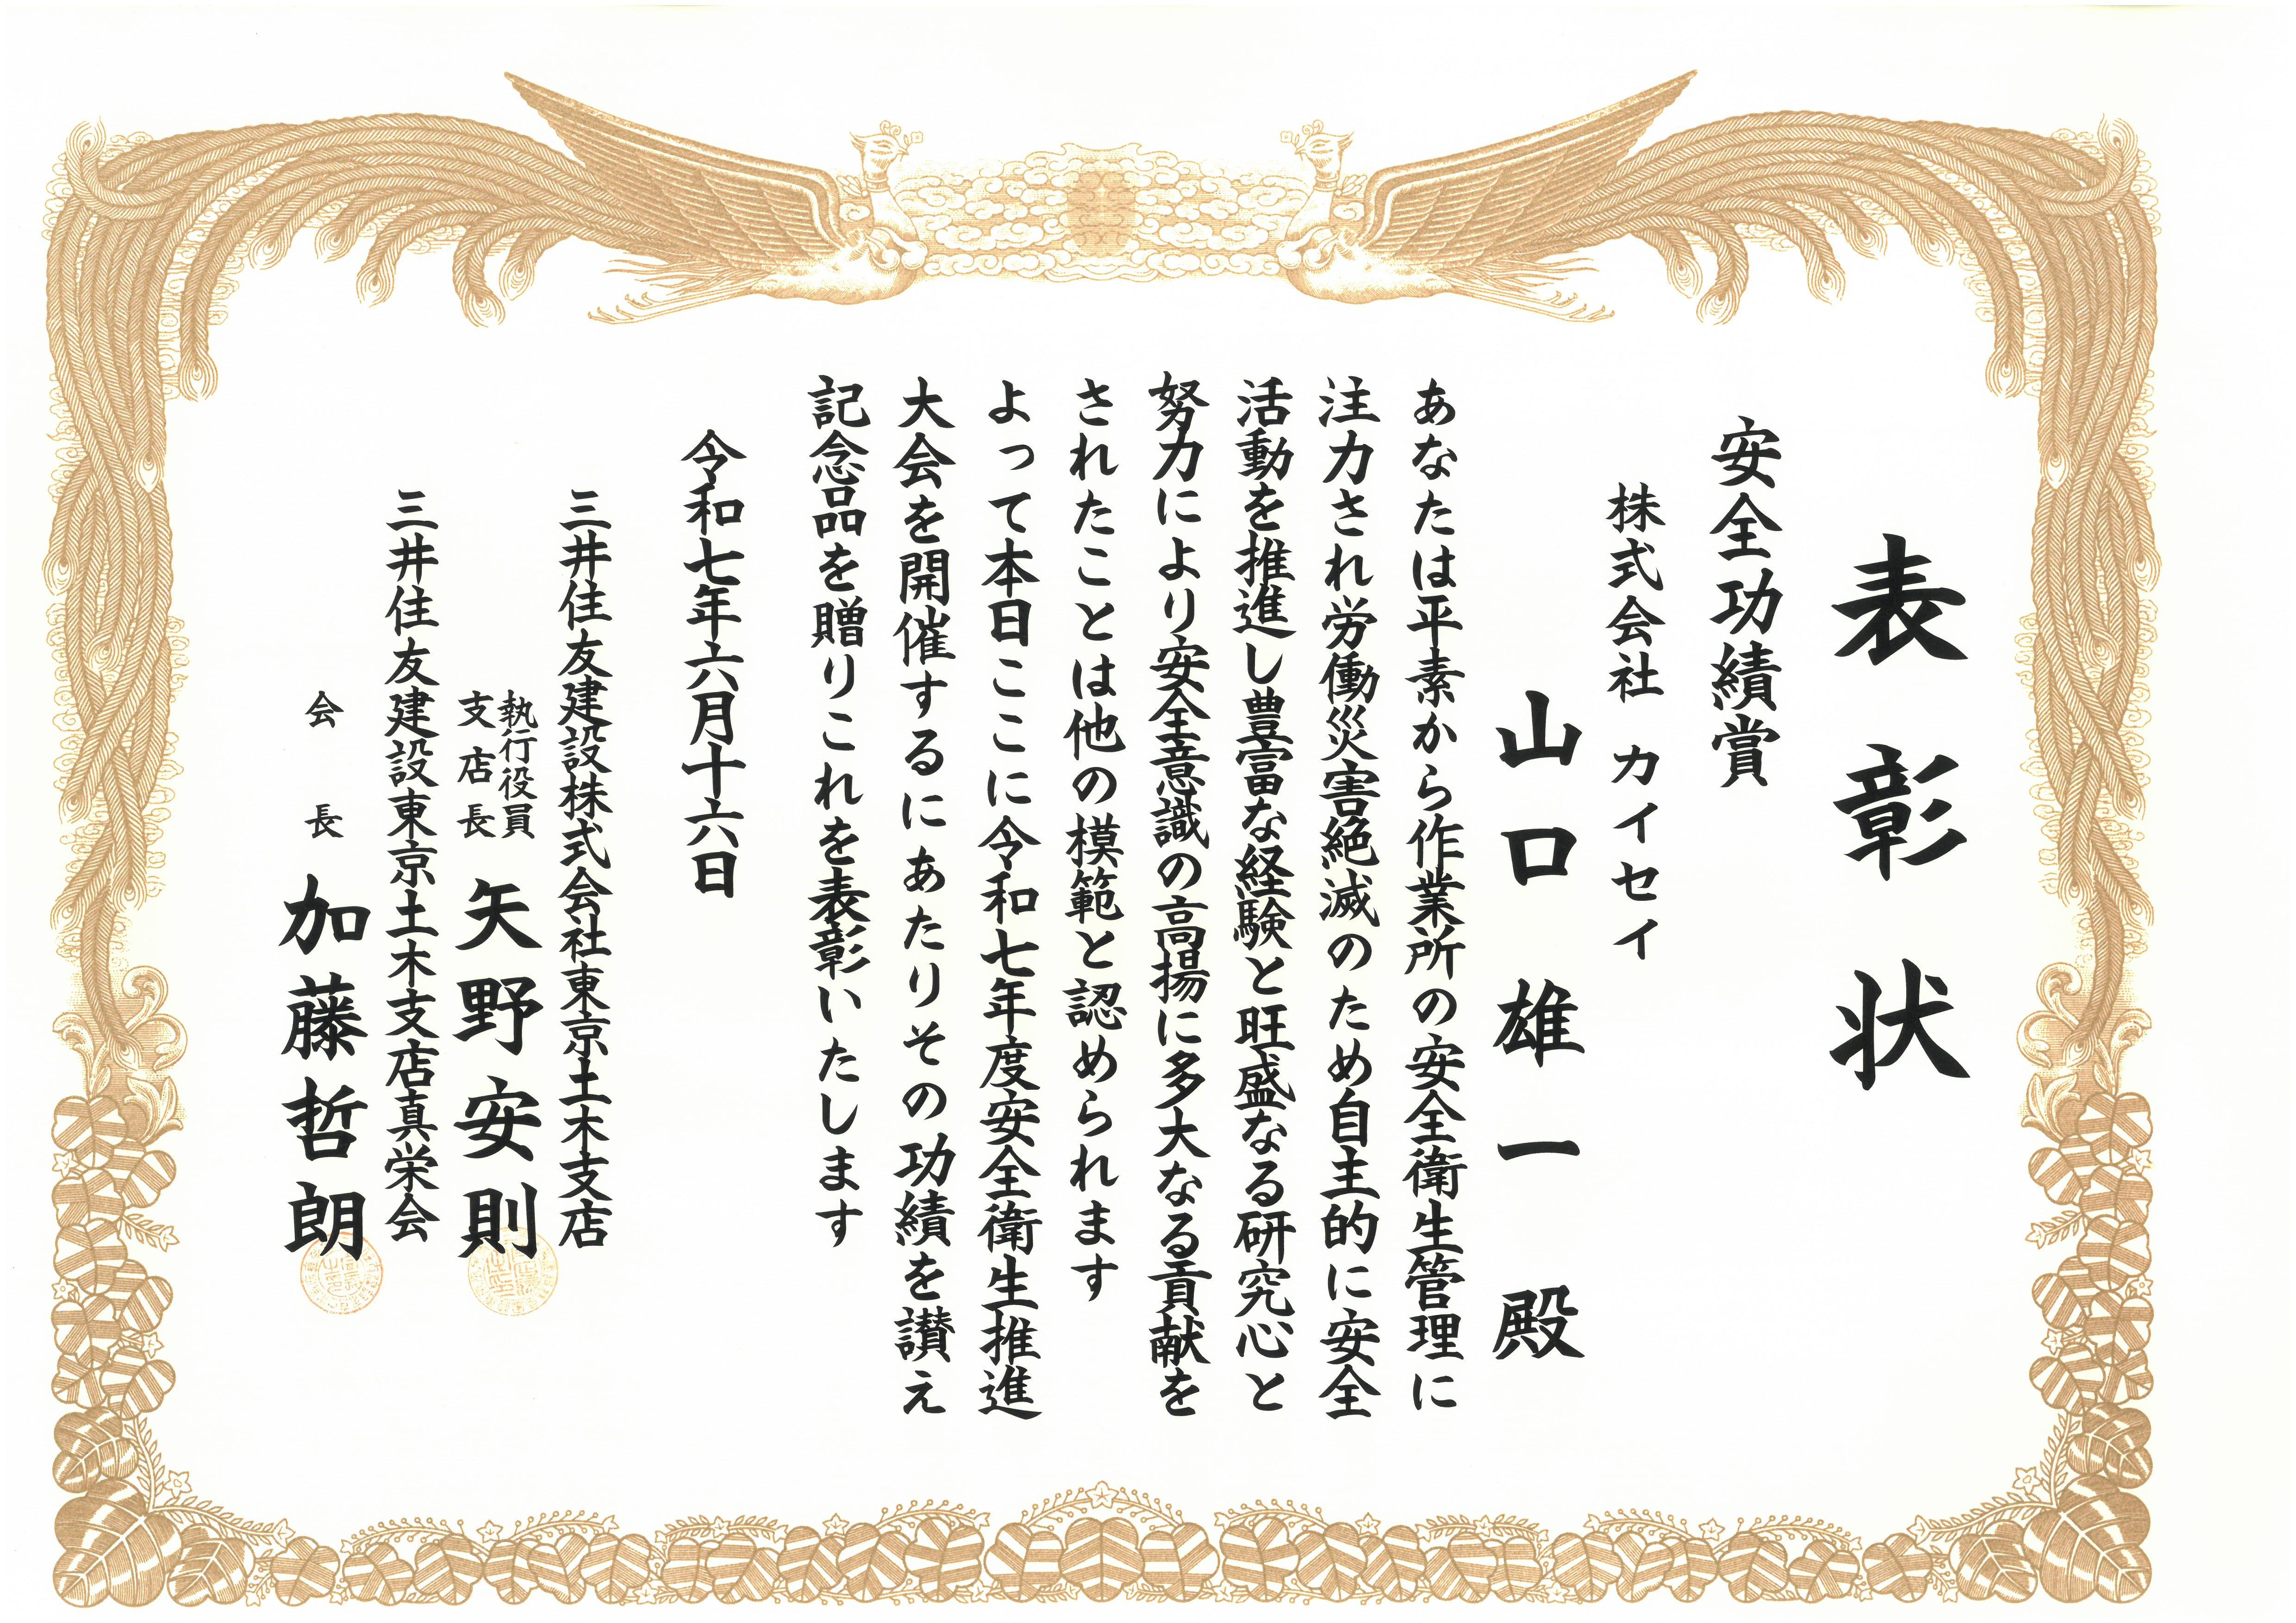 表彰状
安全功績賞
株式会社 カイセイ
山口雄一殿
あなたは平素から作業所の安全衛生管理に
注力され労働災害絶滅のため自主的に安全
活動を推進し豊富な経験と旺盛なる研究心と
努力により安全意識の高揚に多大なる貢献を
されたことは他の模範と認められます
よって本日ここに令和七年度安全衛生推進
大会を開催するにあたりその功績を讃え
記念品を贈りこれを表彰いたします
令和七年六月十六日
三井住友建設株式会社東京土木支店
執行役員
支店長 矢野安則
三井住友建設東京土木支店真栄会
会長 加藤哲朗